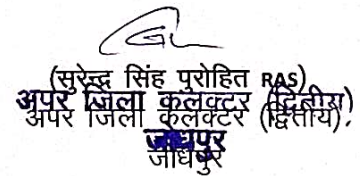 (सुरेन्द्र सिंह पुरोहित RAS)
अपर जिला कलेक्टर (द्वितीय)
अपर जिला कलेक्टर (द्वितीय).
जोधपुर
जोधपुर